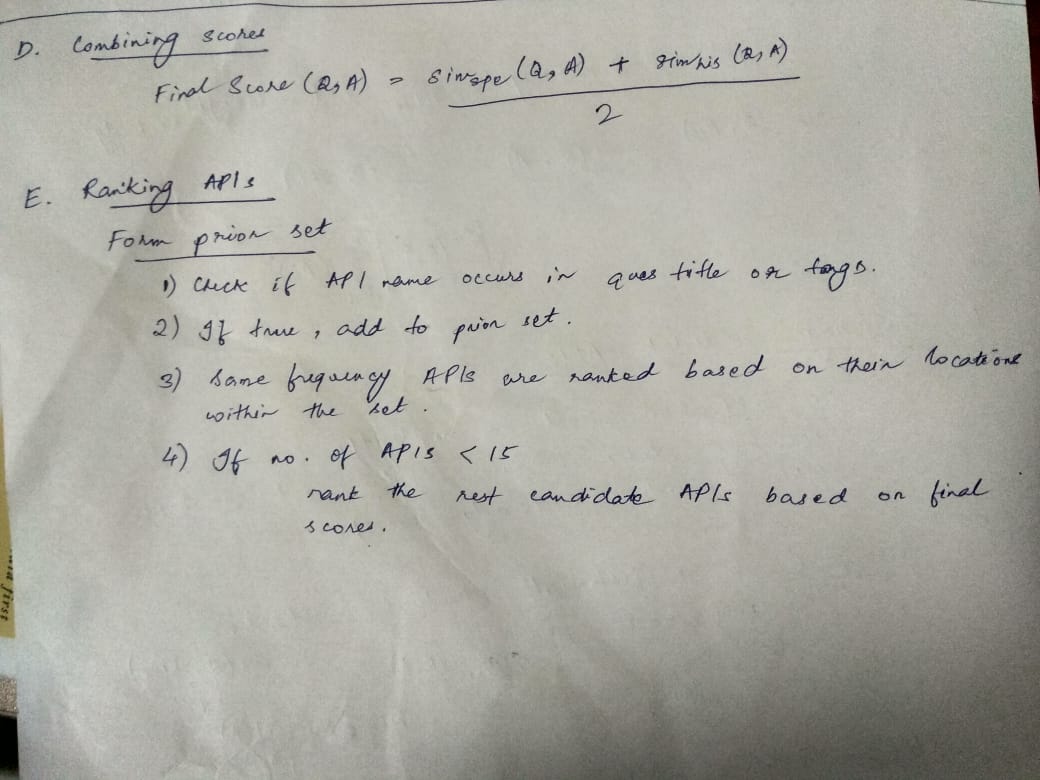 D. Combining scores
Final Score (Q, A) = simspe (Q, A) + simhis (Q, A)
2
E. Ranking APIs
Form prior set
1) Check if API name occurs in ques title or tags.
2) If true, add to prior set.
3) Same frequency APIs are ranked based on their locations
within the set.
4) If no. of APIs < 15
rank the rest candidate APIs based on final
scores.
first